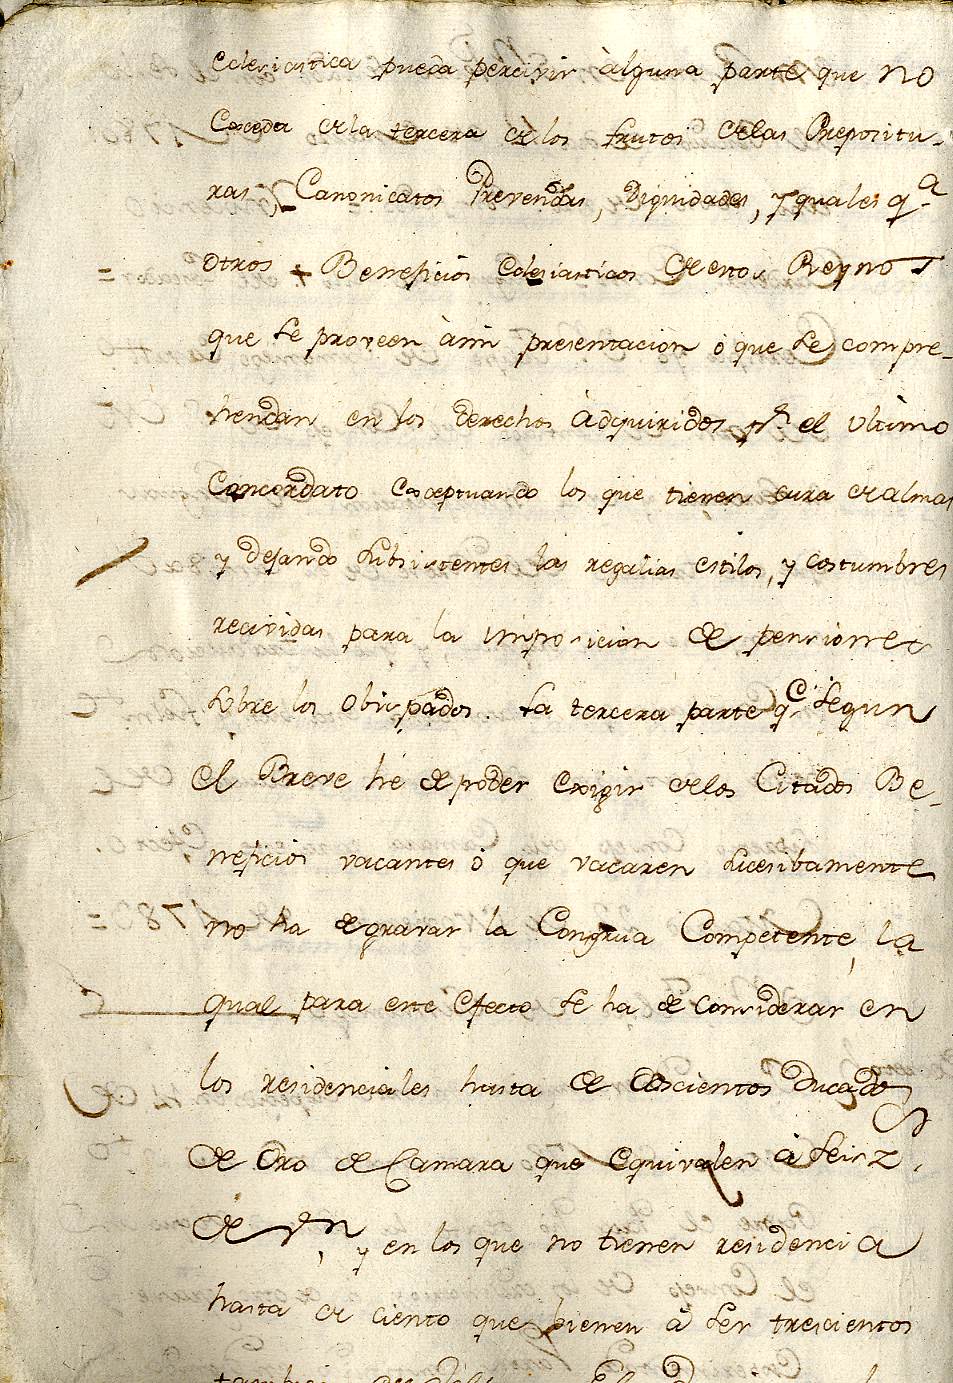 Eclesiastica pueda percivir àlguna parte que no
Exceda de la tercera de los frutos de las Prepositu-
ras, Canonicatos Prevendas, Dignidades, y quales q.ª
otros + Beneficios Eclesiasticos de estos Reynos
que se proveen à mi presentacion ò que se compre-
hendan en los derechos àdquiridos p.r el ultimo
Concordato Exceptuando los que tienen cura de almas
y dejando subsistentes las regalias estilos, y costumbres
recividas para la imposicion de pensiones
sobre los obispados. La tercera parte q.e segun
el Breve hé de poder Exigir de los Citados Be-
neficios vacantes ò que vacaren sucesibamente
no ha de gravar la Congrua Competente, la
qual para este efecto se ha de considerar en
los residenciales hasta de doscientos Ducados
de Oro de Camara que equivalen à seis
de v.n, y en los que no tienen residencia
hasta de ciento que bienen à ser trescientos